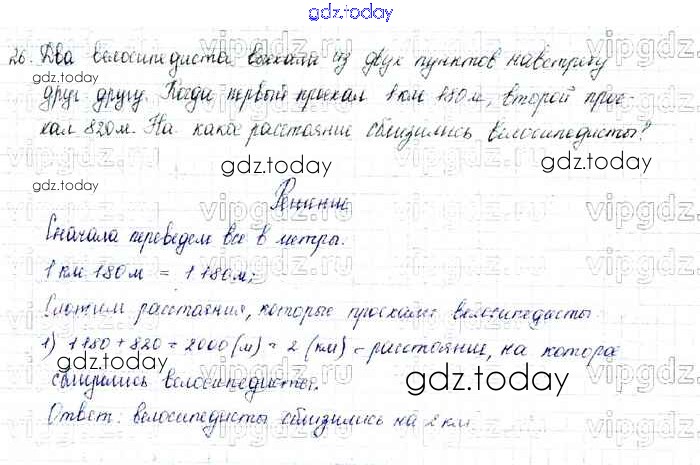 gdz.today
26. Два велосипедиста выехали из двух пунктов навстречу
друг другу. Когда первый проехал 1 км 180 м, второй прое-
хал 820 м. На какое расстояние сблизились велосипедисты?
gdz.today
gdz.today
gdz.today
Решение
vipgdz.ru
Сначала переведем все в метры.
1 км 180 м = 1180 м;
Сложим расстояния, которые проехали велосипедисты
1) 1180 + 820 = 2000 (м) = 2 (км) - расстояние, на которое
gdz.today
сблизились велосипедисты.
gdz.today
Ответ: велосипедисты сблизились на 2 км